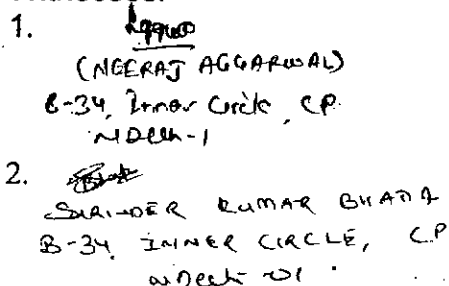 1.
(NEERAJ AGGARWAL)
B-34, Inner Circle, CP.
NDelh-1
2.
SURINDER KUMAR BHATIA
B-34 INNER CIRCLE, CP
NDelh-01.